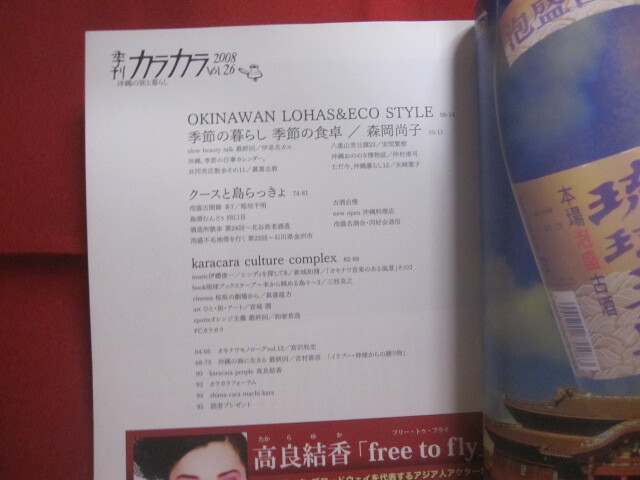 季刊 カラカラ 2008 VOL.26
沖縄の旅と暮らし
OKINAWAN LOHAS&ECO STYLE 98-14
季節の暮らし 季節の食卓 / 森岡尚子 10-11
slow beauty talk 最終回/伊是名カエ
沖縄、季節の行事カレンダーへ。
共同売店散歩その11/眞喜志敦
八重山芳日器23/安間繁樹
沖縄おのめき博物誌/仲村清司
ただ今、沖縄暮らし12/矢崎葉子
クースと島らっきょ 74-81
泡盛古酒
島酒むんどぅ 四口目
酒造所散歩 第24回〜北谷長老酒造
泡盛不毛地帯を行く 第22回〜石川県金沢市
古酒自慢
new open 沖縄料理店
泡盛名酒会・同好会通信
karacara culture complex 82-89
music伊禮俊一/シンディを探して8/新城和博/「オキナワ音楽のある風景」その2
book琉球ブックスケープ〜本から眺める島々〜3/三枝克之
cinema 桜坂の劇場から/真喜屋力
art ひと・街・アート/宮城 潤
sportsオレンジ主義 最終回/和家若造
FCカラカラ
04-05 オキナワモノローグvol.12/宮沢和史
68-73 沖縄の海に生きる 最終回/吉村喜彦 「イラブー・神様からの贈り物」
90 karacara people 高良結香
92 カラカラフォーラム
94 shima-cara machi-kara
95 読者プレゼント
たか ら ゆ か フリー・トゥ・フライ
高良結香「free to fly」
泡盛
本場泡盛
古酒
琉